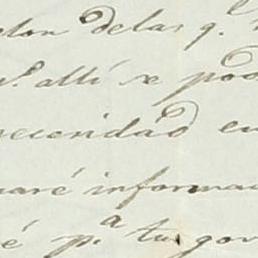 delas q.
allí se pod
necesidad en
aré informa
é p.ª tu gov